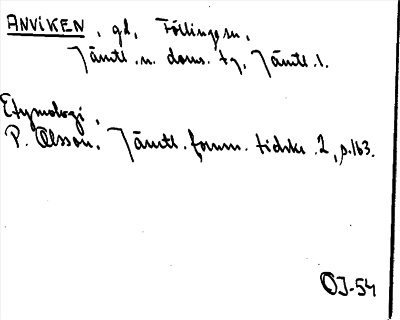 ANVIKEN, gd, Föllinge sn,
Jämtl. n. doms. tg, Jämtl. l.
Etymologi,
P. Olsson, Jämtl. fornm. tidskr. 2, s. 163.
OJ-54